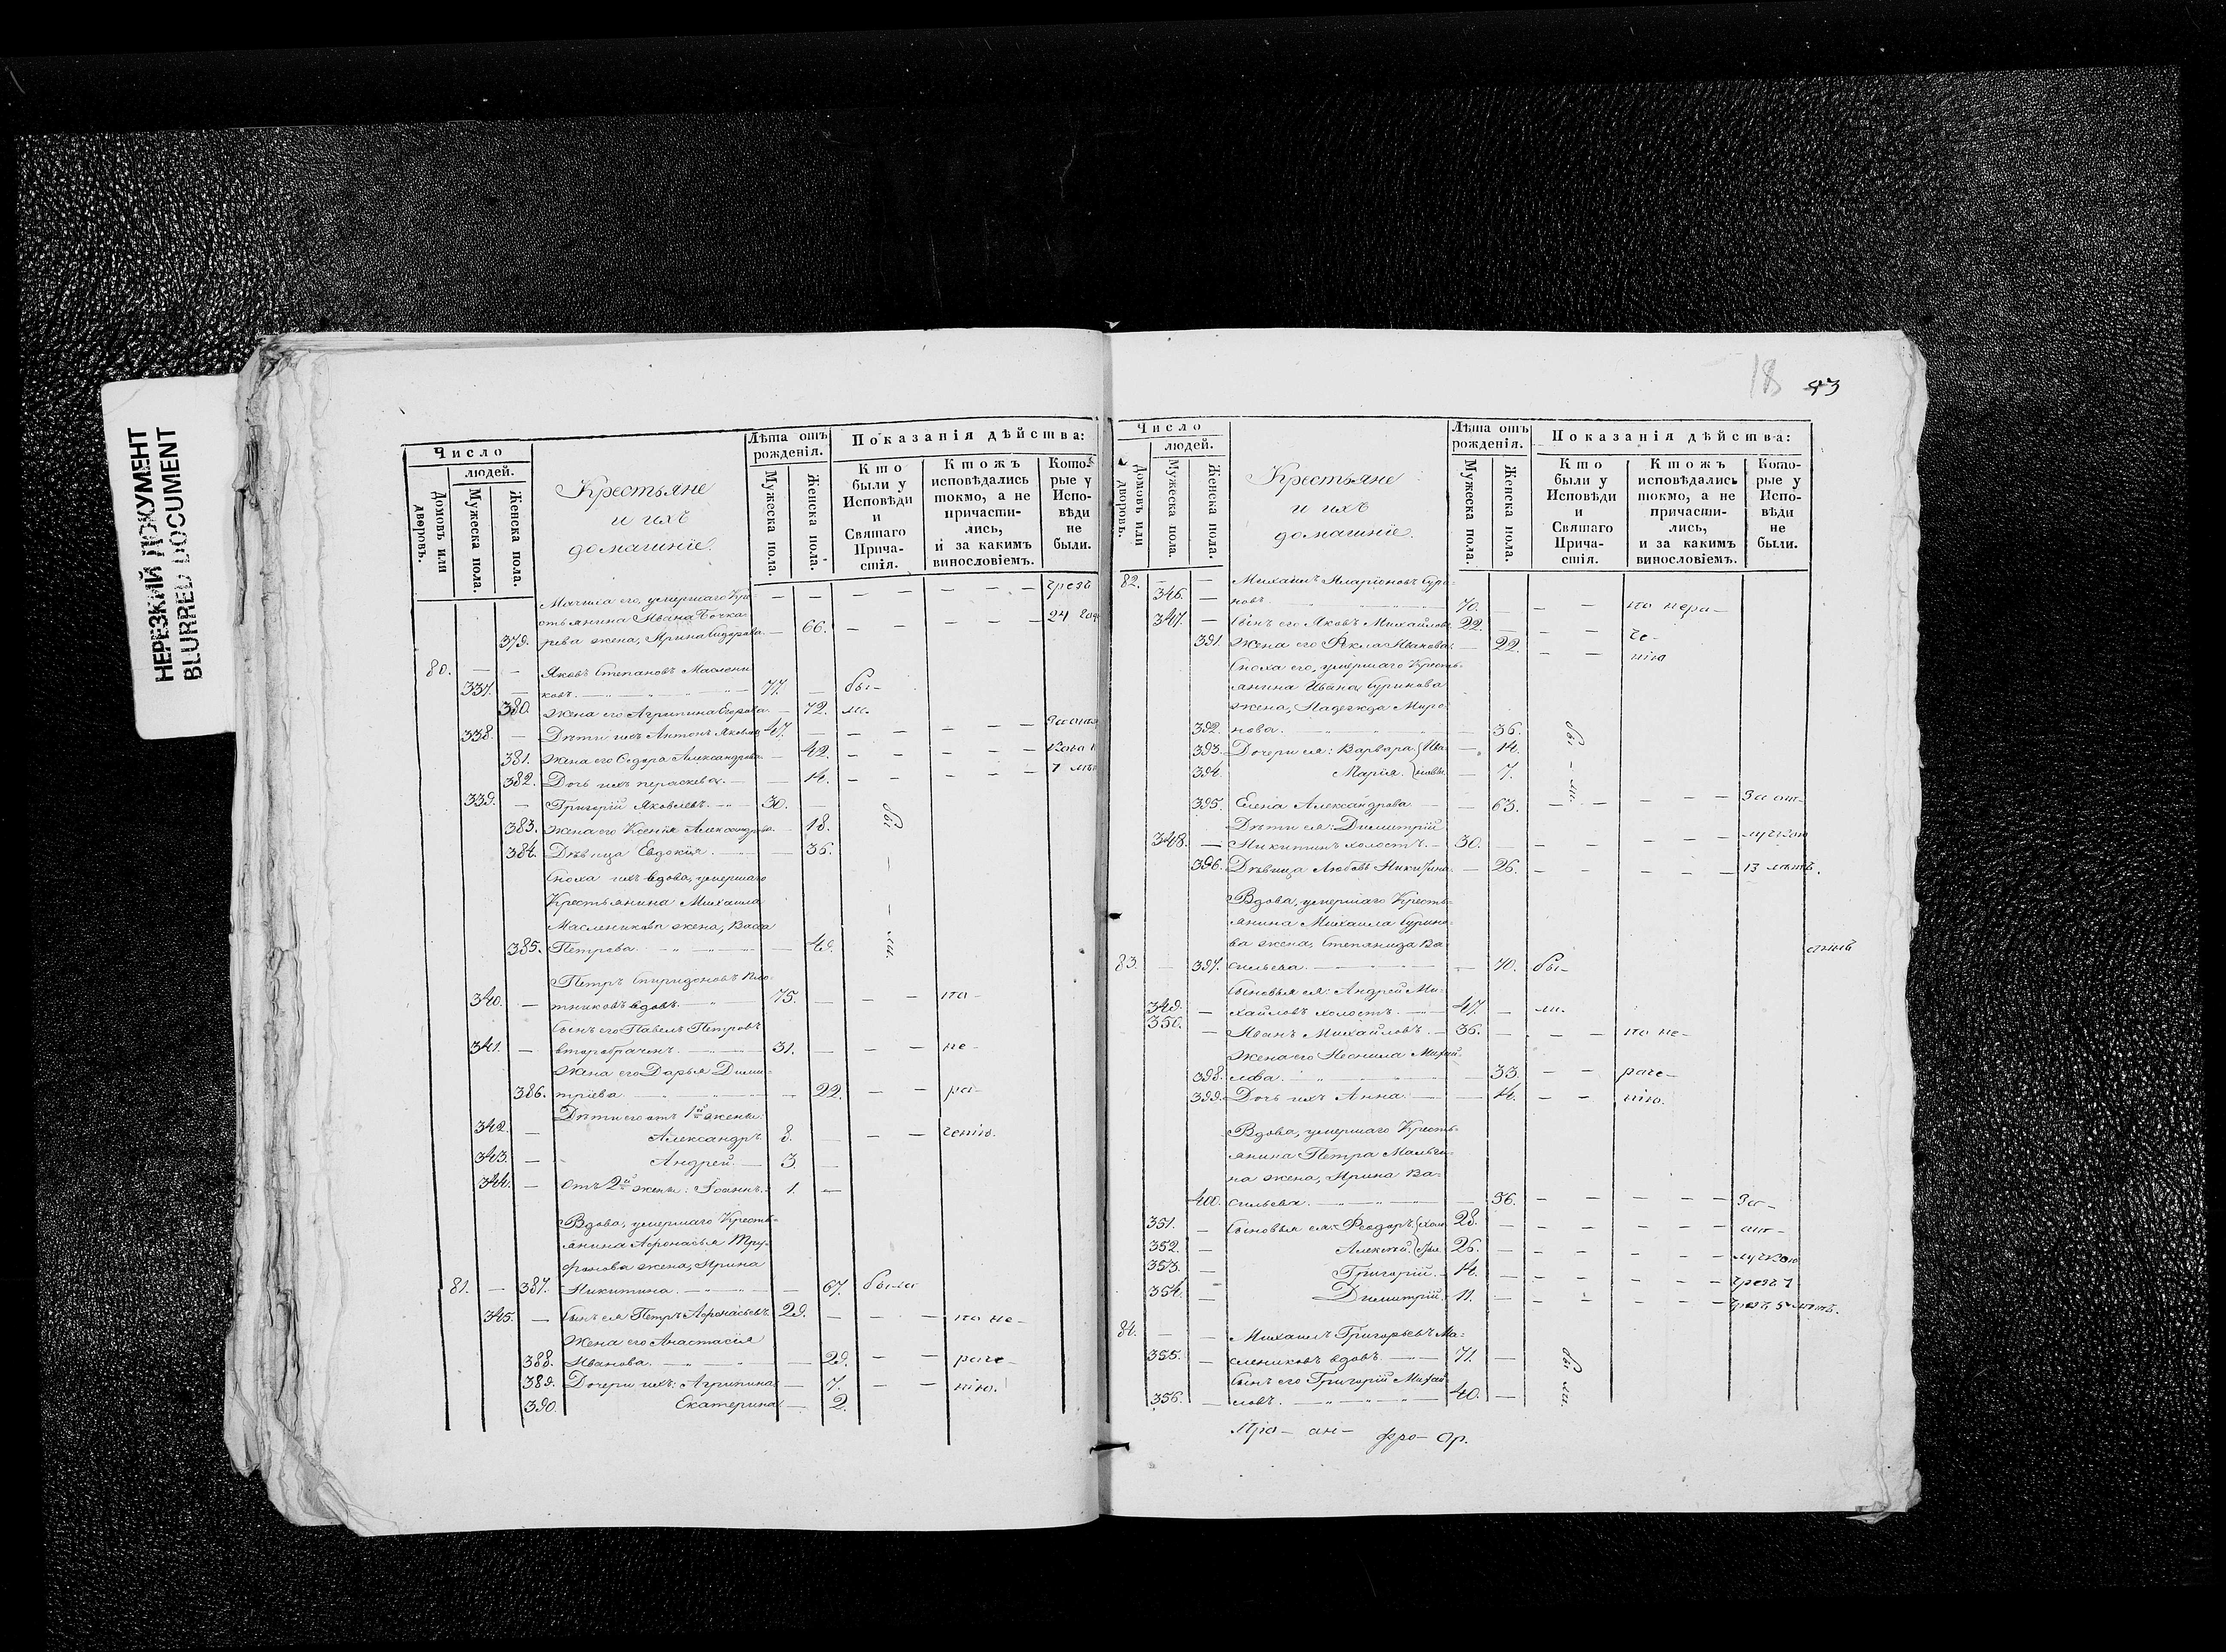 НЕРЕЗКИЙ ДОКУМЕНТ
BLURRED DOCUMENT
Число
людей.
Домовъ или дворовъ.
Мужеска пола.
Женска пола.
Крестьяне
и ихъ
домашніе.
Лѣта отъ
рожденія.
Мужеска пола.
Женска пола.
Показанія дѣйства:
Кто
были у
Исповѣди
и
Святаго
Прича-
стія.
Ктожъ
исповѣдались
токмо, а не
причасти-
лись,
и за какимъ
винословіемъ.
Кото-
рые у
Испо-
вѣди
не
были.
Мачиха его, умершаго Кре- — — — — — — — чрезъ
стьянина Ивана Бочка-
379. рева жена, Ирина Сидорова — 66. — — — — — 24 года
80. — — Яковъ Степановъ Маслени
337. — ковъ. — 77. — бы-
380. Жена его Агрипина Егорова — 72. ли.
338. — Дѣти ихъ Антонъ Яковлевъ 47. — — — — —
381. Жена его Ѳедора Александрова — 42. — — — — —
382. Дочь ихъ Параскева. — 14. — — — — — 7 лѣтъ
339. — Григорій Яковлевъ. — 30. —
383. Жена его Ксенія Александрова — 18. бы-
384. Дѣвица Евдокія. — 36.
Сноха ихъ вдова, умершаго
Крестьянина Михаила
Масленикова жена, Васса
385. Петрова. — 49. ли.
Петръ Спиридоновъ Пло-
340. — тниковъ вдовъ. — 75. — — — по-
Сынъ его Павелъ Петровъ
341. — второбраченъ. — 31. — — — не-
Жена его Дарья Дими-
386. тріева. — 22. — — ра-
Дѣти его отъ 1й жены:
342. — Александръ. 8. — — — ченію.
343. — Андрей. — 3. —
344. — Отъ 2й жены: Іоаннъ. 1. —
Вдова, умершаго Кресть-
янина Афонасья Три-
фонова жена, Ирина
81. — 387. Никитина. — 67. была
345. — Сынъ ея Петръ Афонасьевъ. 29. — — — по не-
Жена его Анастасія
388. Иванова. — 29. — — раче-
389. Дочери ихъ: Агрипина — 7. — — нію.
390. Екатерина. — 2.
18 43
Число
людей.
Домовъ или дворовъ.
Мужеска пола.
Женска пола.
Крестьяне
и ихъ
домашніе.
Лѣта отъ
рожденія.
Мужеска пола.
Женска пола.
Показанія дѣйства:
Кто
были у
Исповѣди
и
Святаго
Прича-
стія.
Ктожъ
исповѣдались
токмо, а не
причасти-
лись,
и за какимъ
винословіемъ.
Кото-
рые у
Испо-
вѣди
не
были.
82. — — Михаилъ Иларіоновъ Сури-
346. — новъ. 70. — — — по нера-
347. — Сынъ его Яковъ Михайловъ 22. — — — че-
391. Жена его Ѳекла Иванова. — 22. — — нію
Сноха его, умершаго Кресть-
янина Ивана Суринова
жена, Надежда Миро-
392. нова. — 36. бы-
393. Дочери ея: Варвара Ива- — 14.
394. Марія. новы. — 7. ли.
395. Елена Александрова. — 63. — — — — За от-
Дѣти ея: Димитрій
348. — Никитинъ холостъ. — 30. — — — — — лучкою
396. Дѣвица Любовь Никитина — 26. — — — — — 13 лѣтъ.
Вдова, умершаго Кресть-
янина Михаила Сурино-
ва жена, Степанида Ва-
83. — 397. сильева. — 70. бы-
Сыновья ея: Андрей Ми-
349. — хайловъ холостъ. — 47. — ли.
350. — Иванъ Михайловъ. — 36. — — — по не-
Жена его Неонила Михай-
398. лова. — 33. — — раче-
399. Дочь ихъ Анна. — 14. — — нію.
Вдова, умершаго Кресть-
янина Петра Мальги-
на жена, Ирина Ва-
400. сильева. — 56. — — — — — За-
351. — Сыновья ея: Ѳеодоръ 28. — — — — — от-
352. — Алексѣй. 26. — — — — — лучкою
353. — Григорій. — 14. — — — — — чрезъ 1
354. — Димитрій. 11. — — — — — чрезъ 5 лѣтъ.
84. — — Михаилъ Григорьевъ Ма-
355. — слениковъ вдовъ. — 71. — бы-
Сынъ его Григорій Михай-
356. — ловъ. — 40. — ли.